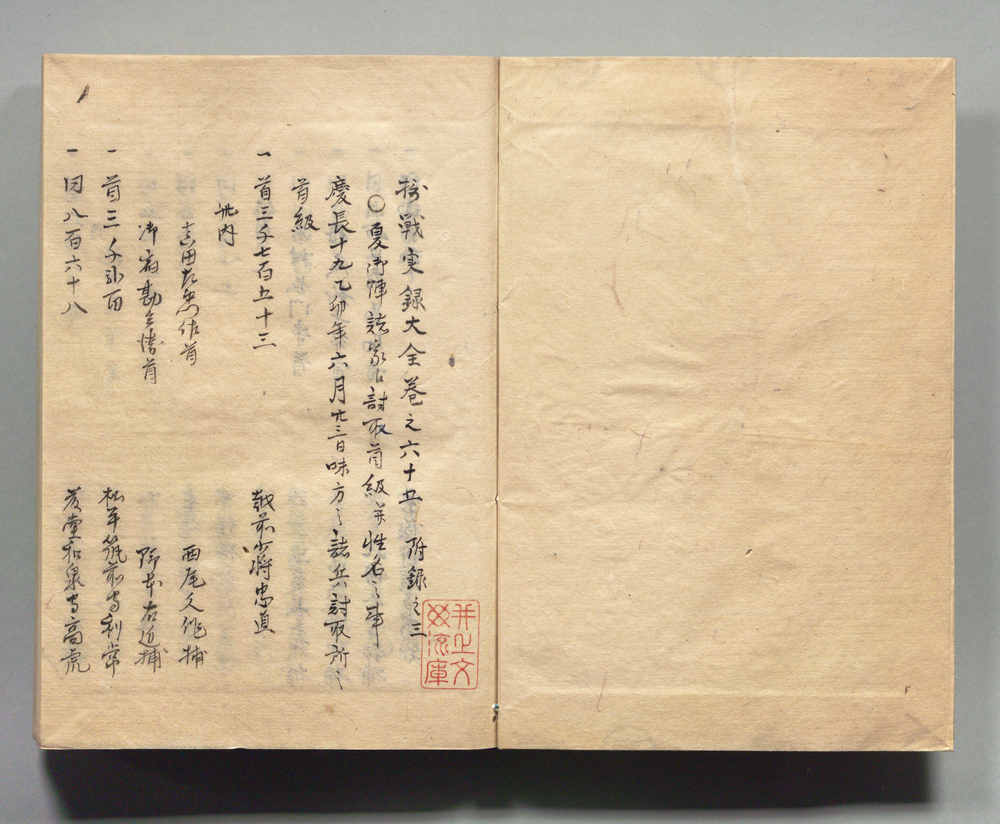 接戦実録大全巻之六十五 附録之三
〇夏御陣諸家江討取首級并性名之事
慶長十九乙卯年六月廿三日味方之諸兵討取所之
首級
一首三千七百五十三 越前少将忠直
此内
真田左衛門佐首 西尾久作捕
御宿勘兵衛首 野本右近捕
一首三千弐百 松平筑前守利常
一同八百六十八 藤堂和泉守高虎
文庫